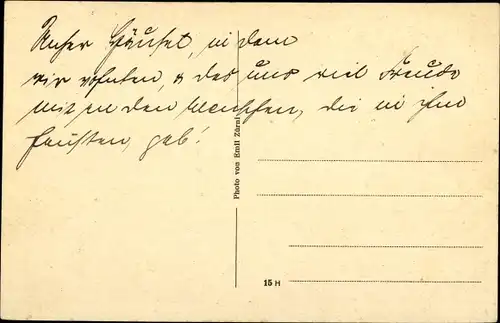 Unser Häusel, in dem
wir wohnten, & das uns viel Freude
mit zu den Menschen, die in ihm
hausten, gab!
Photo von Emil Zürn
15 H